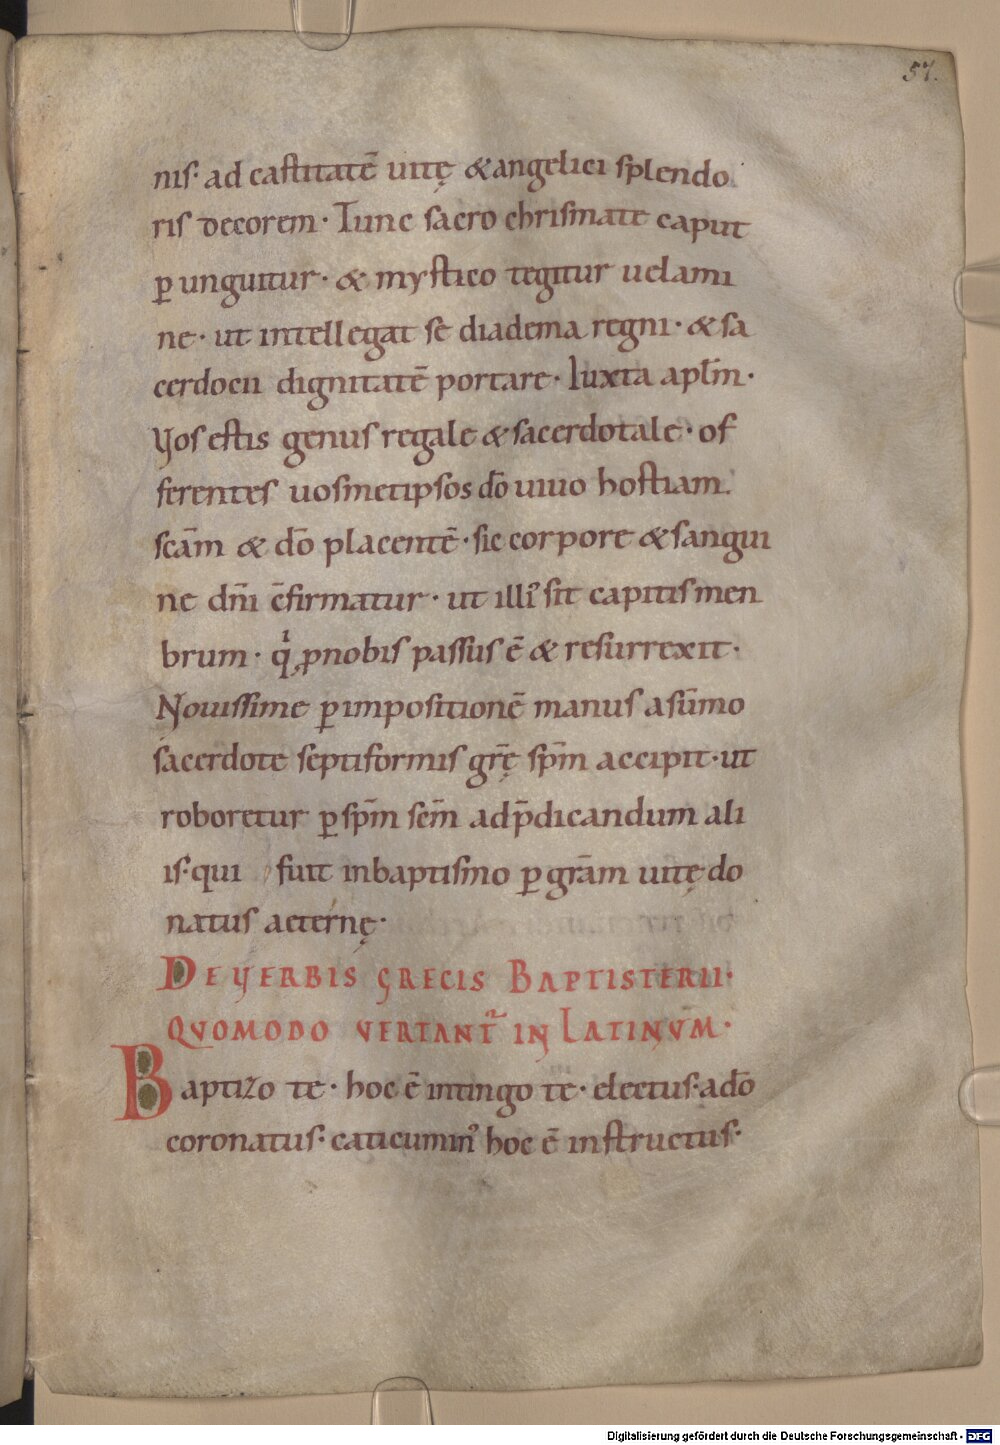 57.
nis· ad castitatē uitę & angelici splendo
ris decorem· Tunc sacro chrismate caput
ꝑunguitur· & mystico tegitur uelami
ne· ut intellegat se diadema regni· & sa
cerdocii dignitatē portare· Iuxta apłm·
Vos estis genus regale & sacerdotale· of
ferentes uosmetipsos dō uiuo hostiam
scām & dō placentē· sic corpore & sangui
ne dn̄i c̄firmatur· ut illiꝰ sit capitis men
brum· qͥ ꝓ nobis passus ē & resurrexit·
Nouissime ꝑ impositionē manus a sūmo
sacerdote septiformis gr̄ę sp̄m accipit· ut
roboretur ꝑ sp̄m scm̄ ad p̄dicandum ali
is· qui fuit in baptismo ꝑ grām uitę do
natus aeternę·
DE VERBIS GRECIS BAPTISTERII·
QVOMODO VERTANT᷑ IN LATINVM·
Baptizo te· hoc ē intingo te· electus· a dō
coronatus· caticuminꝰ hoc ē instructus·
Digitalisierung gefördert durch die Deutsche Forschungsgemeinschaft - DFG